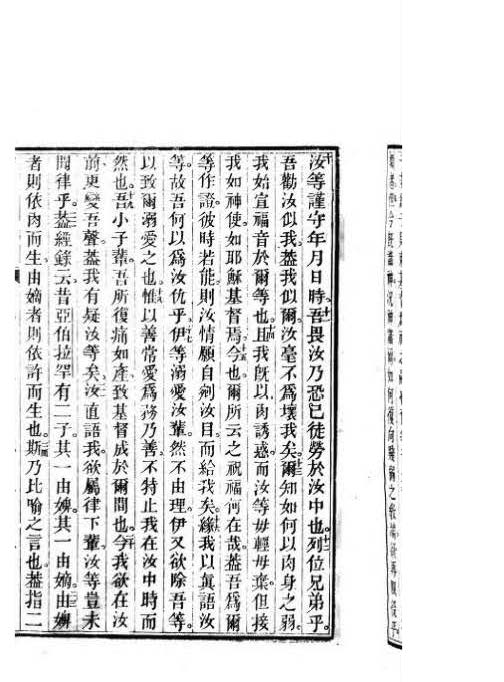 汝等謹守年月日時。吾畏汝乃恐已徒勞於汝中也。列位兄弟乎。
吾勸汝似我。蓋我似爾。汝毫不爲壞我矣。爾知如何以肉身之弱。
我始宣福音於爾等也。且我旣以肉誘惑而汝等毋輕毋棄但接
我如神使如耶穌基督焉。今也爾所云之祝福何在哉。蓋吾爲爾
等作證。彼時若能則汝情願自剜汝目而給我矣。緣我以眞語汝
等。故吾何以爲汝仇乎。伊等溺愛汝輩。然不由理伊又欲除吾等。
以致爾溺愛之也。惟以善常愛爲務乃善。不特止我在汝中時而
然也。吾小子輩。吾所復痛如產致基督成於爾間也。今我欲在汝
前更變吾聲。蓋我有疑汝等矣。汝直語我欲屬律下輩。汝等豈未
聞律乎。蓋經錄云昔亞伯拉罕有二子。其一由婢。其一由嫡。由婢
者則依肉而生。由嫡者則依許而生也。斯乃比喻之言也。蓋指二